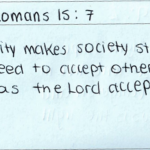 omans 15 : 7
ity makes society st
eed to accept other
as the Lord accep